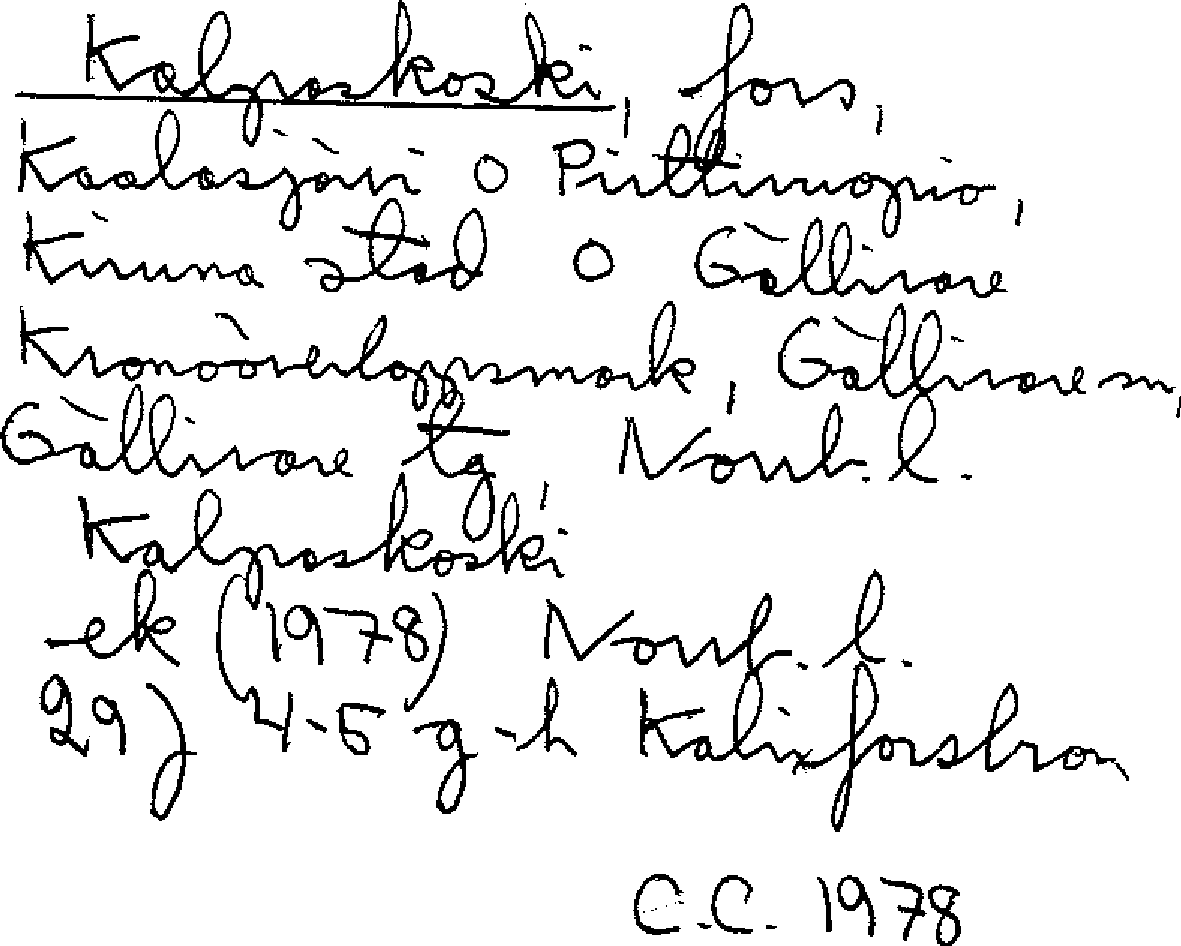 Kalpaskoski, fors,
Kaalasjärvi o Pirttivuopio,
Kiruna stad o Gällivare
Kronoöverloppsmark, Gällivare sn,
Gällivare tg, Norrb. l.
Kalpaskoski
ek (1978) Norrb. l.
29J 4-5 g-h Kalixforsbron
C.C. 1978